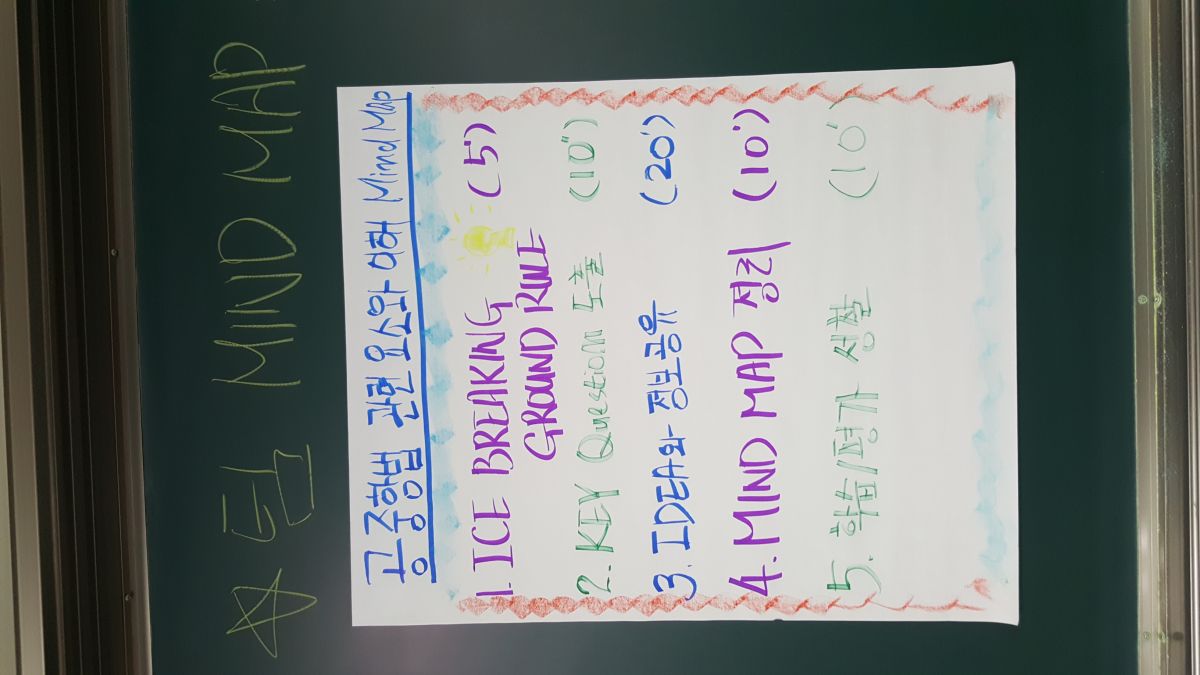 ☆ 팀 MIND MAP
공중항법 관련 요소와 이해 Mind Map
1. ICE BREAKING (5')
GROUND RULE
2. KEY Question 도출 (10")
3. IDEA와 정보공유 (20')
4. MIND MAP 정리 (10')
5. 학습/평가 성찰 (10')